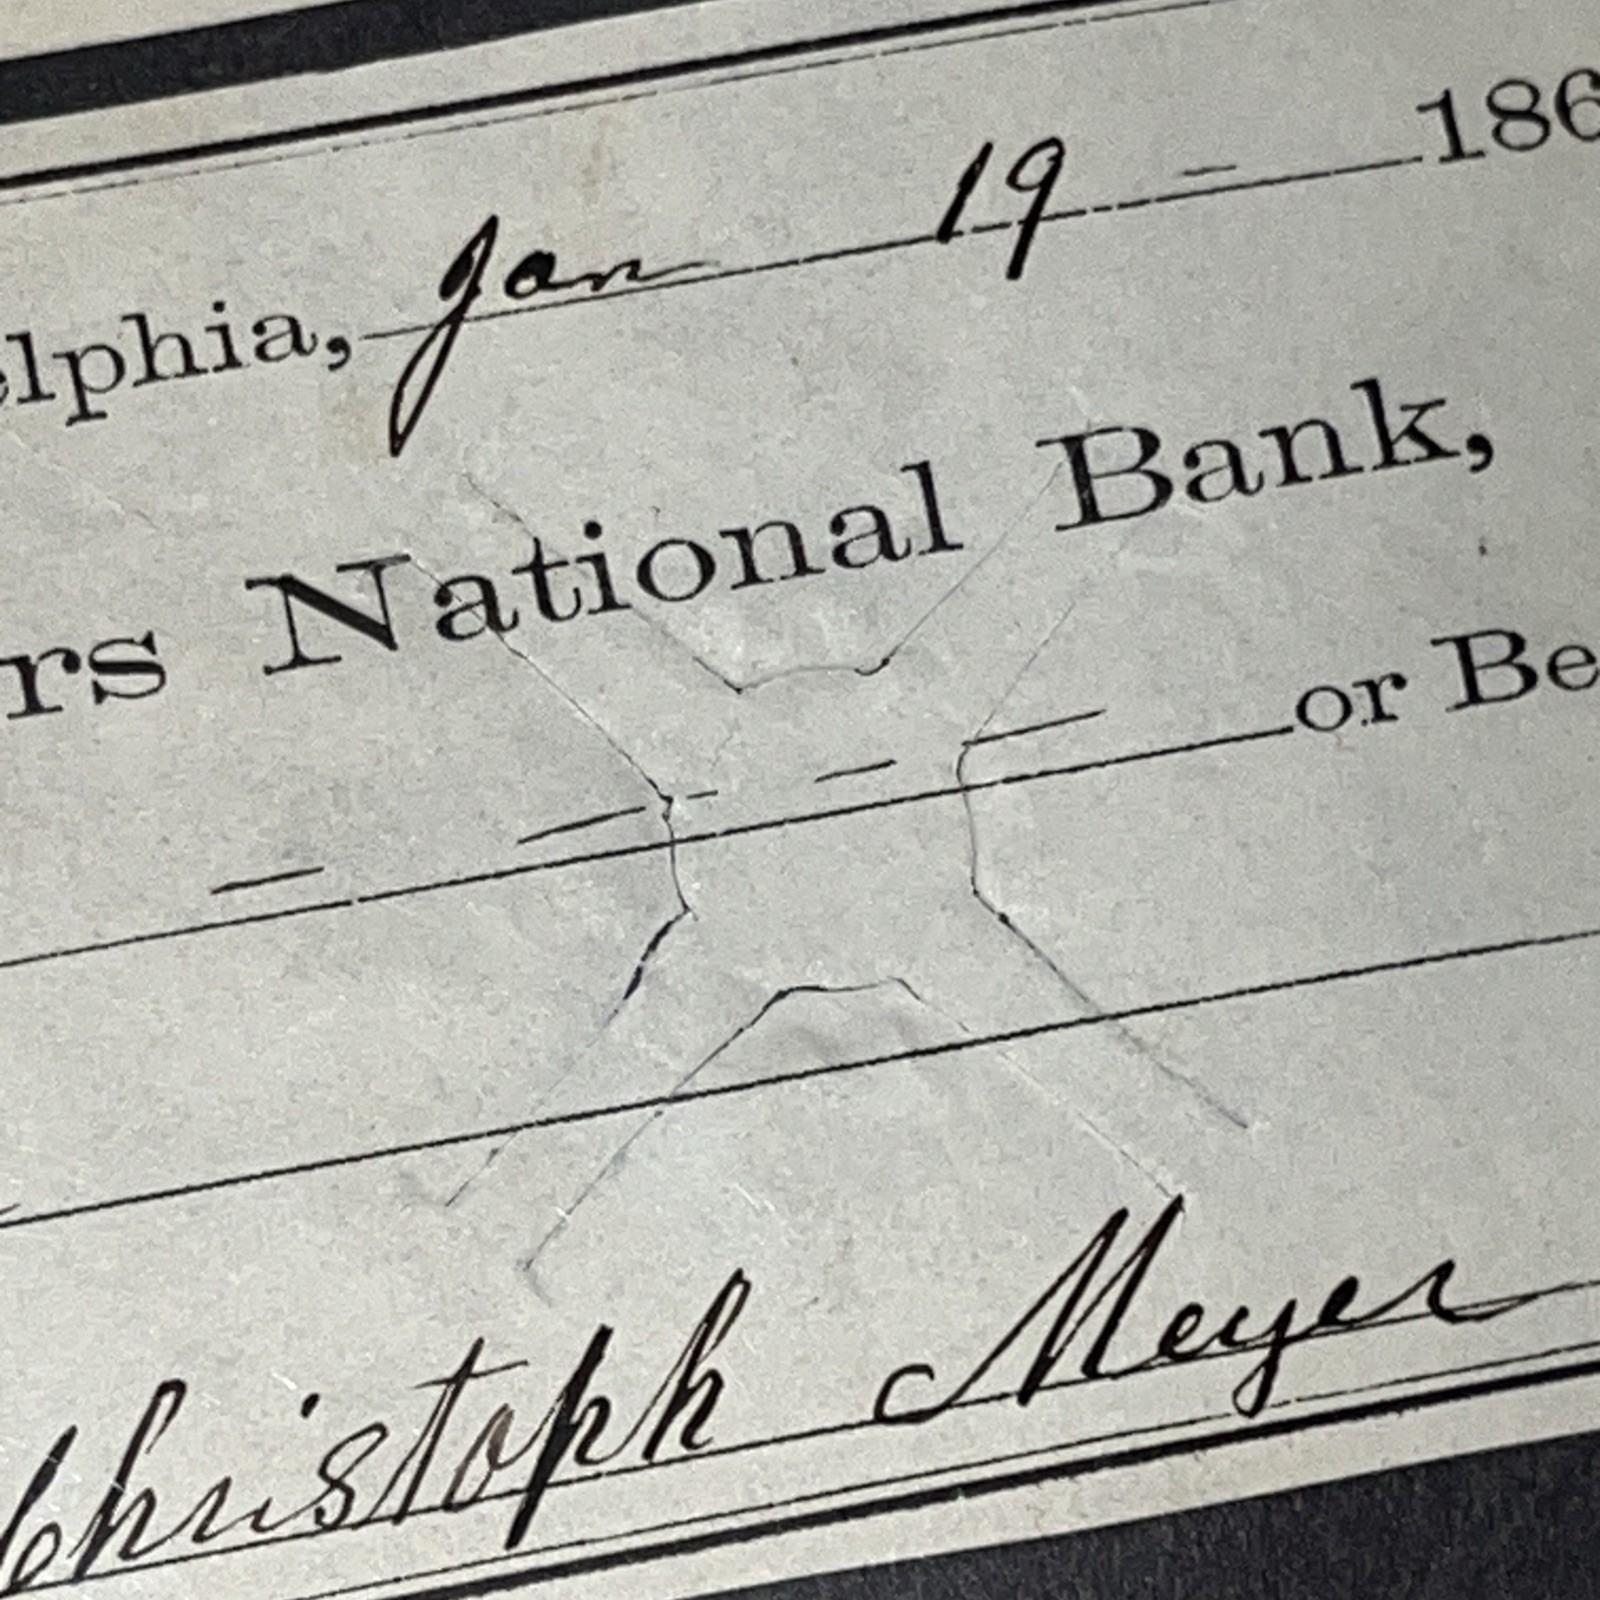 elphia, Jan 19 186
rs National Bank,
or Be
Christoph Meyer